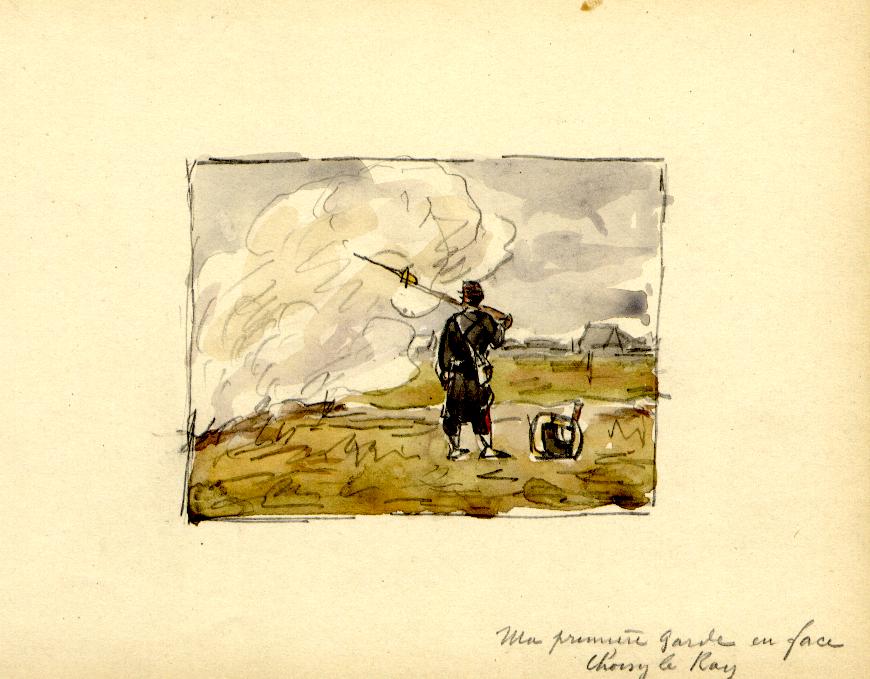 Ma première garde en face
Choisy le Roy